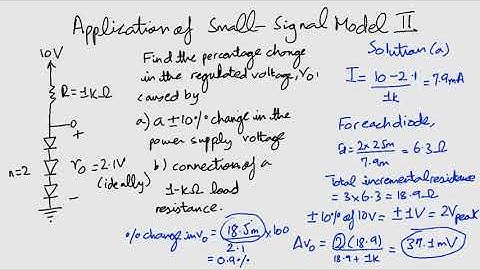 Application of Small-Signal Model II
10V
R=1kΩ
+
n=2
vo=2.1V
(ideally)
-
Find the percentage change
in the regulated voltage, vo,
caused by
a) a ±10% change in the
power supply voltage
b) connection of a
1-kΩ load
resistance.
% change in vo = 18.5m/2.1 × 100
= 0.9%
Solution (a)
I = 10-2.1/1k = 7.9mA
For each diode,
rd = 2 x 25m/7.9m = 6.3Ω
Total incremental resistance
= 3 x 6.3 = 18.9Ω
±10% of 10V = ±1V = 2Vpeak
Δvo = 2(18.9)/18.9+1k = 37.1mV